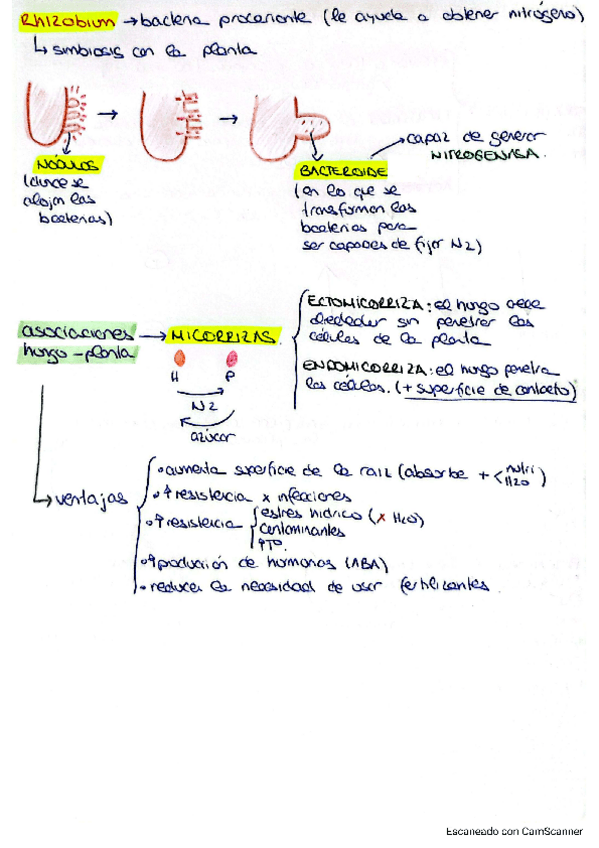 Rhizobium → bacteria procarionte (le ayuda a obtener nitrógeno)
↳ simbiosis con la planta
→ →
→ capaz de generar
NITROGENASA.
NÓDULOS
(donde se
alojan las
bacterias)
BACTEROIDE
(en lo que se
transforman las
bacterias para
ser capaces de fijar N2)
asociaciones
hongo-planta
→ MICORRIZAS
ECTOMICORRIZA: el hongo crece
alrededor sin penetrar las
células de la planta
ENDOMICORRIZA: el hongo penetra
las células. (+ superficie de contacto)
H P
N2
azúcar
↳ ventajas
• aumenta superficie de la raíz (absorbe + < nutri
H2O)
• ↑ resistencia x infecciones
• ↑ resistencia { estrés hídrico (x H2O)
contaminantes
↑Tº
• ↑ producción de hormonas (ABA)
• reducen la necesidad de usar fertilizantes.
Escaneado con CamScanner